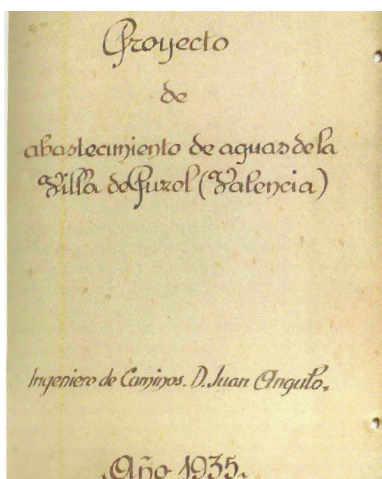 Proyecto
de
abastecimiento de aguas de la
Villa de Puzol (Valencia)
Ingeniero de Caminos. D. Juan Angulo.
Año 1935.